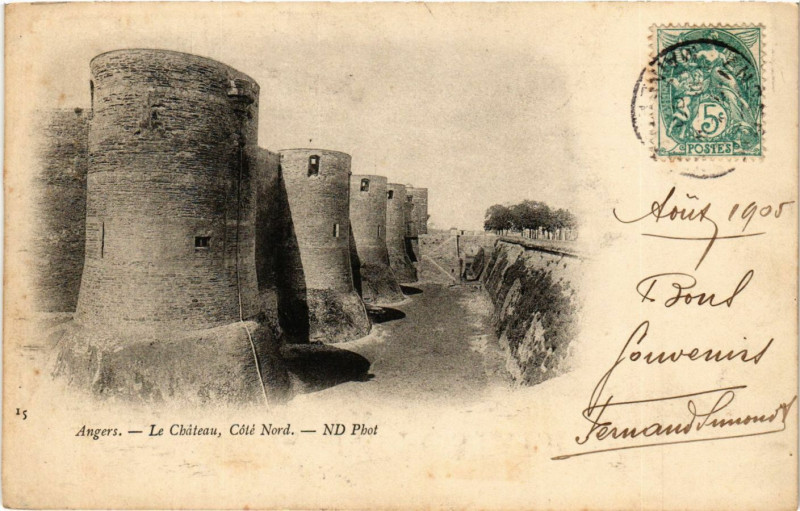 5c
POSTES
Août 1905
Bons
Souvenirs
Fernand Simond
15
Angers. — Le Château, Côté Nord. — ND Phot